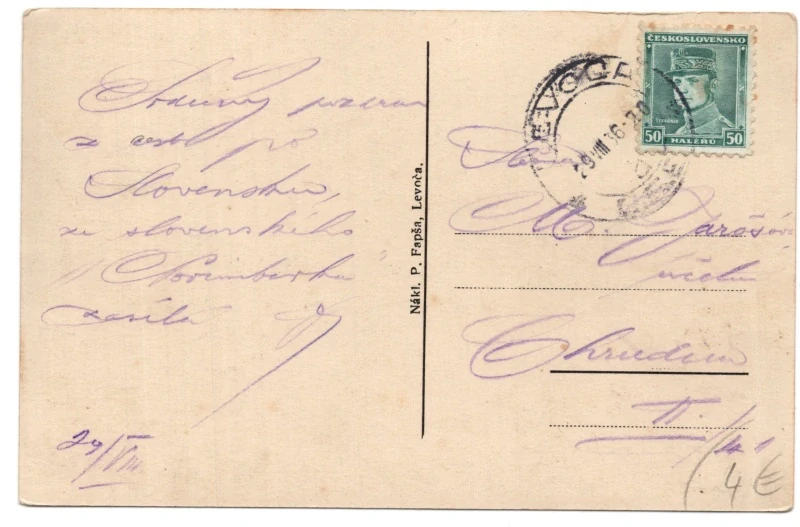 Srdečný pozdrav
z cesty po
Slovensku,
ze slovenského
"Norimberka
zasílá
29/VIII
Nákl. P. Fapša, Levoča.
LEVOČA
29.VIII 36
ČESKOSLOVENSKO
ŠTEFÁNIK
50 HALÉŘŮ 50
M. Jarošová
učitelka
Chrudim
III.
4€